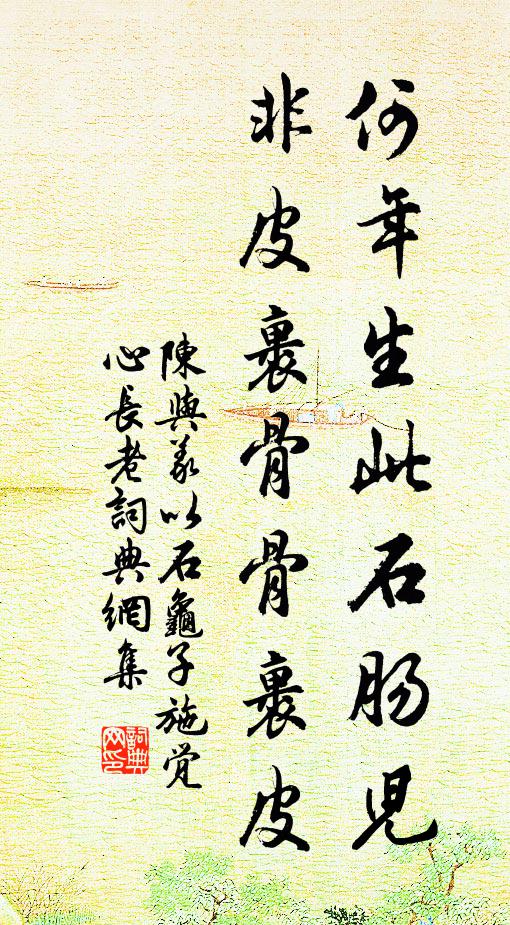 何年生此石肠児
非皮裹骨骨裹皮
陳與義以石龜子施觉
心長老詞典網集
詞典网印